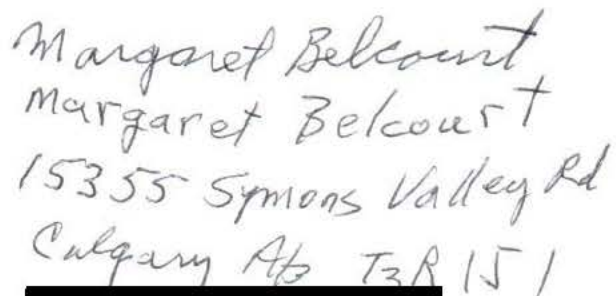 Margaret Belcourt
Margaret Belcourt
15355 Symons Valley Rd
Calgary Ab T3R 151